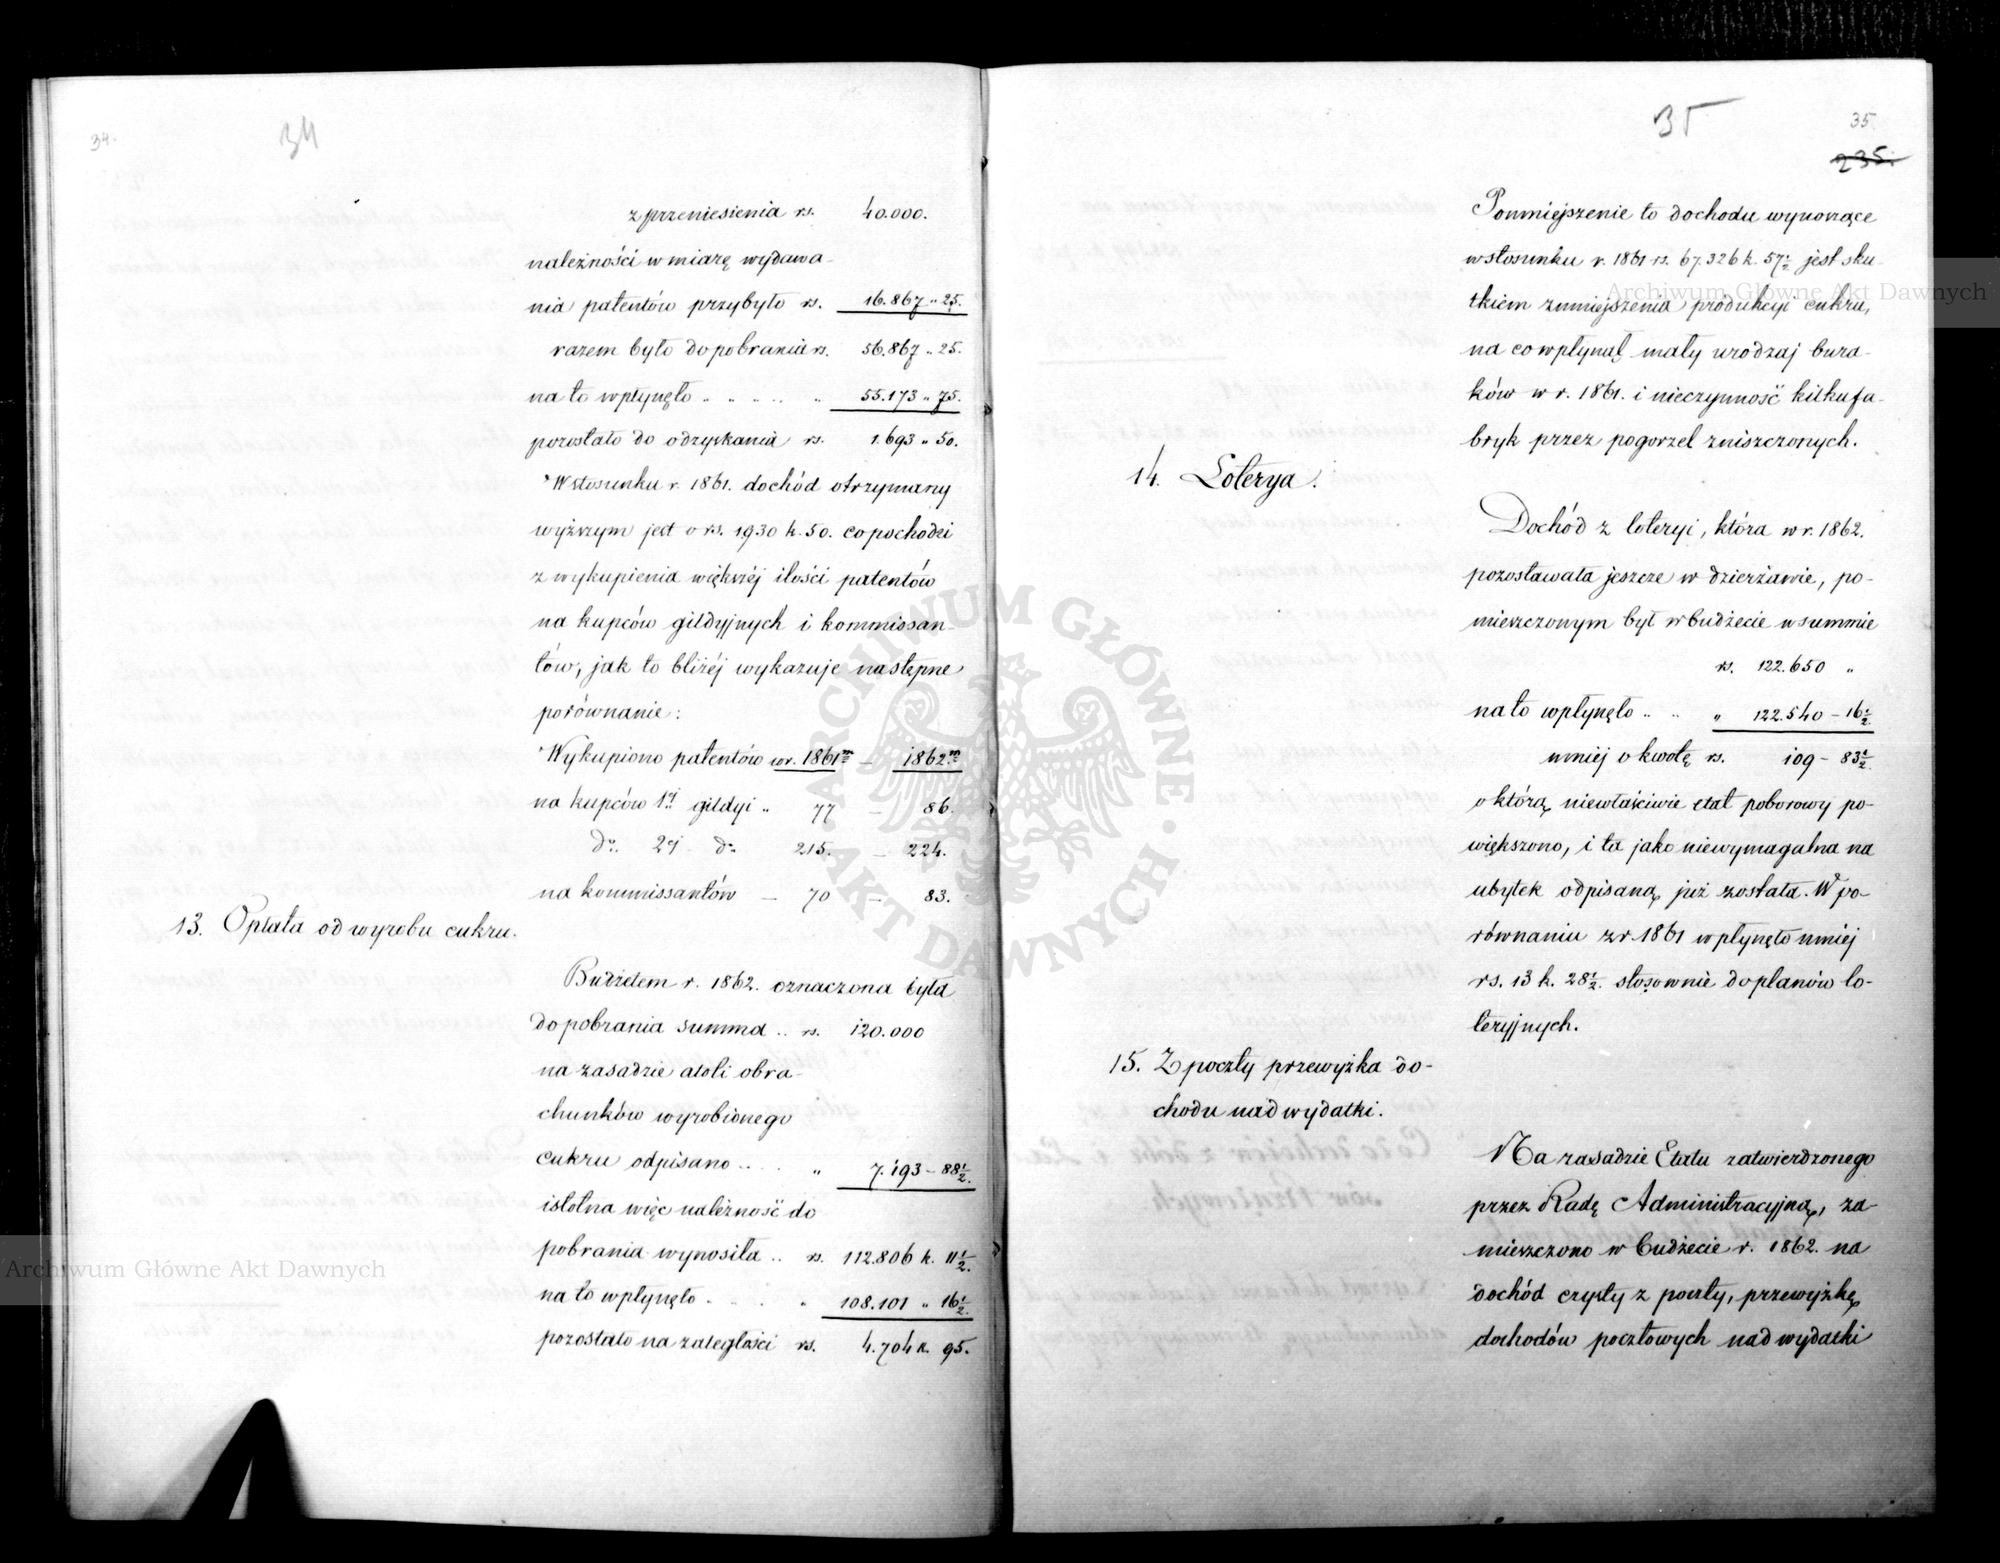 34.
34
z przeniesienia rs. 40.000.
należności w miarę wydawa-
nia patentów przybyło rs. 16.867 „ 25.
razem było do pobrania rs. 56.867 „ 25.
na to wpłynęło „ „ „ „ „ 55.173 „ 75.
pozostało do odzyskania rs. 1.693 „ 50.
W stosunku r. 1861. dochód otrzymany
wyższym jest o rs. 1930 k. 50. co pochodzi
z wykupienia większéj ilości patentów
na kupców gildyjnych i kommissan-
tów, jak to bliżéj wykazuje następne
porównanie:
Wykupiono patentów w r. 1861m — 1862m
na kupców 1éj gildyi „ 77 — 86.
do. 2éj do 215. — 224.
na kommissantów — 70 — 83.
13. Opłata od wyrobu cukru.
Budżetem r. 1862. oznaczona była
do pobrania summa .. rs. 120.000
na zasadzie atoli obra-
chunków wyrobionego
cukru odpisano .. .. „ 7.193 — 88½.
istotna więc należność do
pobrania wynosiła .. rs. 112.806 k. 11½.
na to wpłynęło . . . „ 108.101 „ 16½.
pozostało na zaległości rs. 4.704 k. 95.
35
35
235.
Pomniejszenie to dochodu wynoszące
w stosunku r. 1861 rs. 67.326 k. 57½ jest sku-
tkiem zmniejszenia produkcyi cukru,
na co wpłynął mały urodzaj bura-
ków w r. 1861. i nieczynność kilku fa-
bryk przez pogorzel zniszczonych.
14. Loterya.
Dochód z loteryi, która w r. 1862.
pozostawała jeszcze w dzierżawie, po-
mieszczonym był w budżecie w summie
rs. 122.650 „
na to wpłynęło .. .. „ 122.540 — 16½.
mniej o kwotę rs. 109 — 83½.
o którą niewłaściwie etat poborowy po-
większono, i ta jako niewymagalna na
ubytek odpisaną już została. W po-
równaniu z r. 1861 wpłynęło mniej
rs. 13 k. 28½. stosownie do planów lo-
teryjnych.
15. Z poczty przewyżka do-
chodu nad wydatki.
Na zasadzie Etatu zatwierdzonego
przez Radę Administracyjną, za-
mieszczono w budżecie r. 1862. na
dochód czysty z poczty, przewyżkę
dochodów pocztowych nad wydatki
Archiwum Główne Akt Dawnych
Archiwum Główne Akt Dawnych
ARCHIWUM GŁÓWNE · AKT DAWNYCH ·